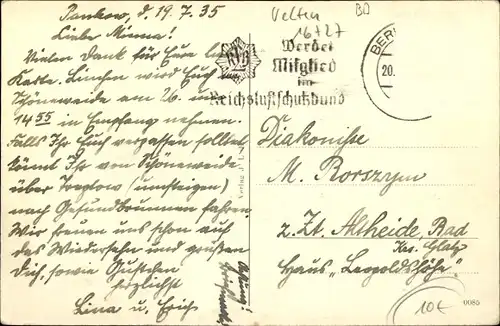 Pankow, d. 19.7.35
Liebe Mama!
Vielen Dank für Eure l.
Karte. Linchen wird Euch in
Schöneweide am 26. um
14 55 in Empfang nehmen.
Falls Ihr Euch verpassen solltet,
könnt Ihr von Schöneweide
über Treptow (umsteigen)
nach Gesundbrunnen fahren.
Wir freuen uns schon auf
das Wiedersehn und grüßen
Dich, sowie Gustchen
herzlichst
Lina u. Erich
Velten
16727
BD
Werdet
Mitglied
im
Reichsluftschutzbund
BER
20.
Diakonisse
M. Borszym
z. Zt. Altheide, Bad
Krs. Glatz
Haus „Leopoldshöhe“
Verlag J.
Achtung!
0085
10€